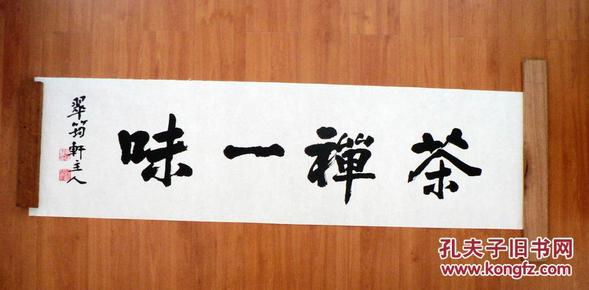 茶禪一味
翠筠軒主人
孔夫子旧书网
www.kongfz.com